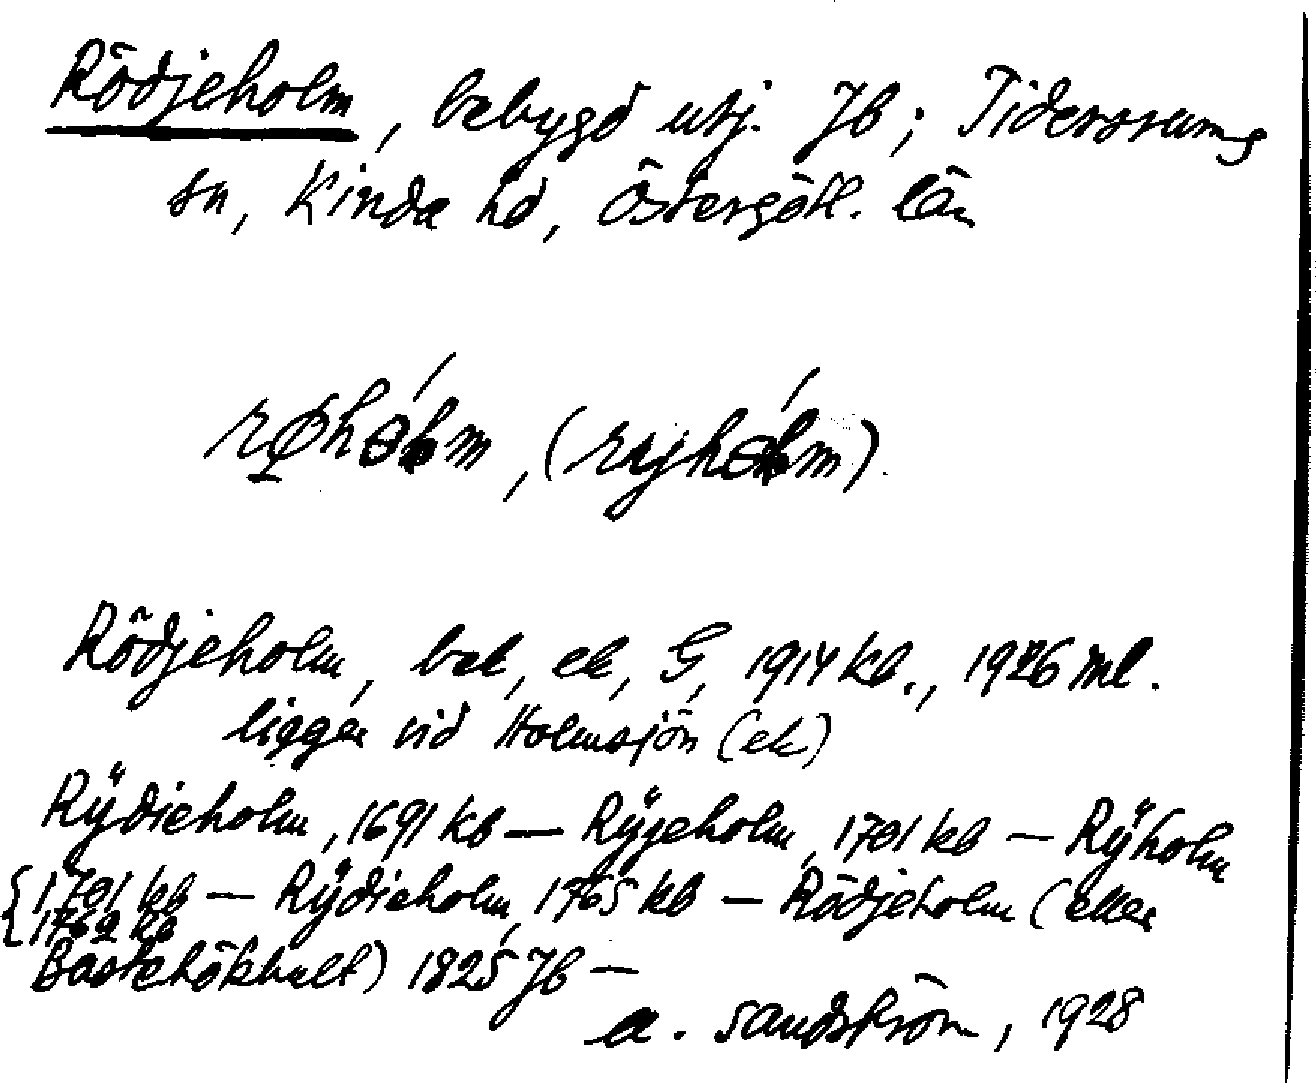 Rödjeholm, bebygd utj. Jb; Tidersrums
sn, Kinda hd, Östergötl. län
Rödjeholm, bek, ek, G, 1914 kb., 1926 ml.
ligger vid Holmsjön (ek)
Rÿdieholm, 1691 kb — Rÿjeholm, 1701 kb — Rÿholm
{1701 kb — Rÿdieholm, 1765 kb — Rödjeholm (eller
1762 kb
Bastehökhult) 1825 Jb —
A. Sandström, 1928